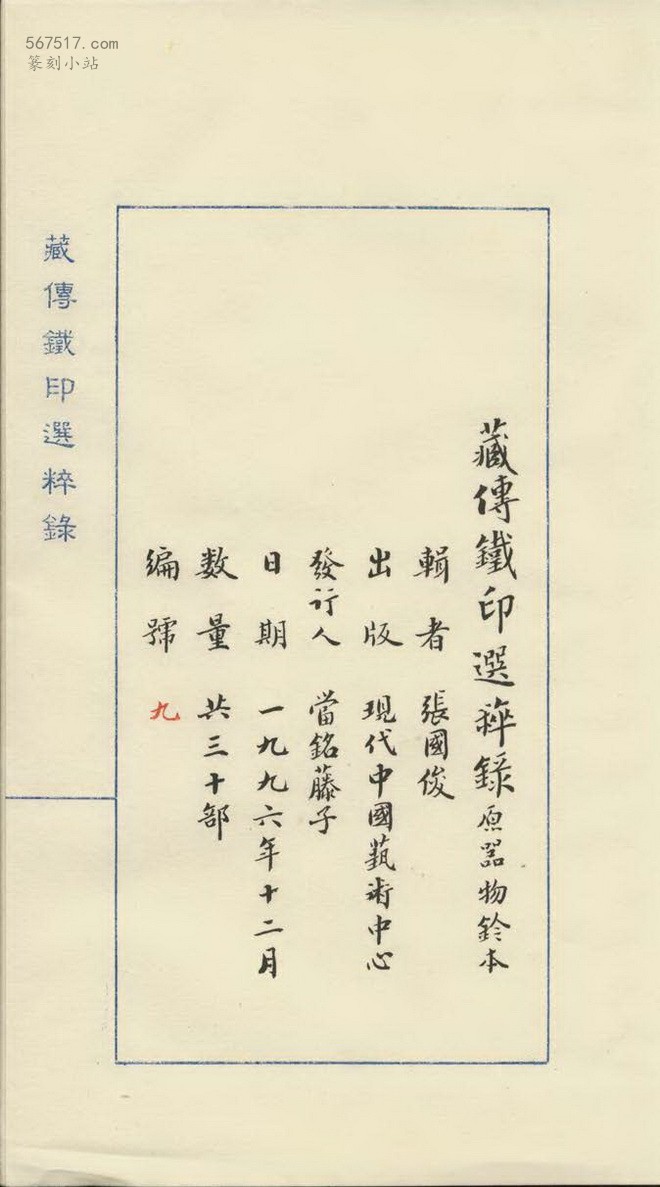 567517.com
篆刻小站
藏傳鐵印選粹錄 原器物鈐本
輯者 張國俊
出版 現代中國藝術中心
發行人 當銘藤子
日期 一九九六年十二月
数量 共三十部
編號 九
藏傳鐵印選粹錄